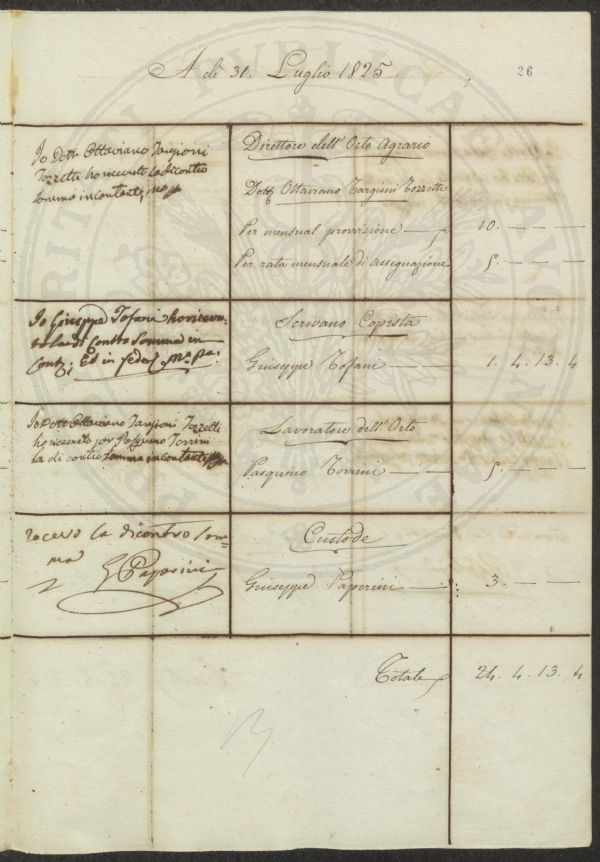 A dì 31. Luglio 1825.
26
Io Dott. Ottaviano Targioni
Tozzetti ho ricevuto la di contro
somma in contanti, mo pp
Direttore dell'Orto Agrario
Dott. Ottaviano Targioni Tozzetti
Per mensual provvisione — 10. — — —
Per rata mensuale di assegnazione 5. — — —
Io Giuseppe Tofani ho ricevu-
to la di Contro Somma in
Conti; Ed in fede Mo. Pa.
Scrivano Copista
Giuseppe Tofani — 1. 4. 13. 4
Io Dott. Ottaviano Targioni Tozzetti
ho ricevuto per Pasquino Torrini
la di contro somma in contanti
Lavoratore dell'Orto
Pasquino Torrini — 5. — — —
ricevo la dicontro som=
ma
G Paperini
Custode
Giuseppe Paperini — 3. — — —
Totale 24. 4. 13. 4